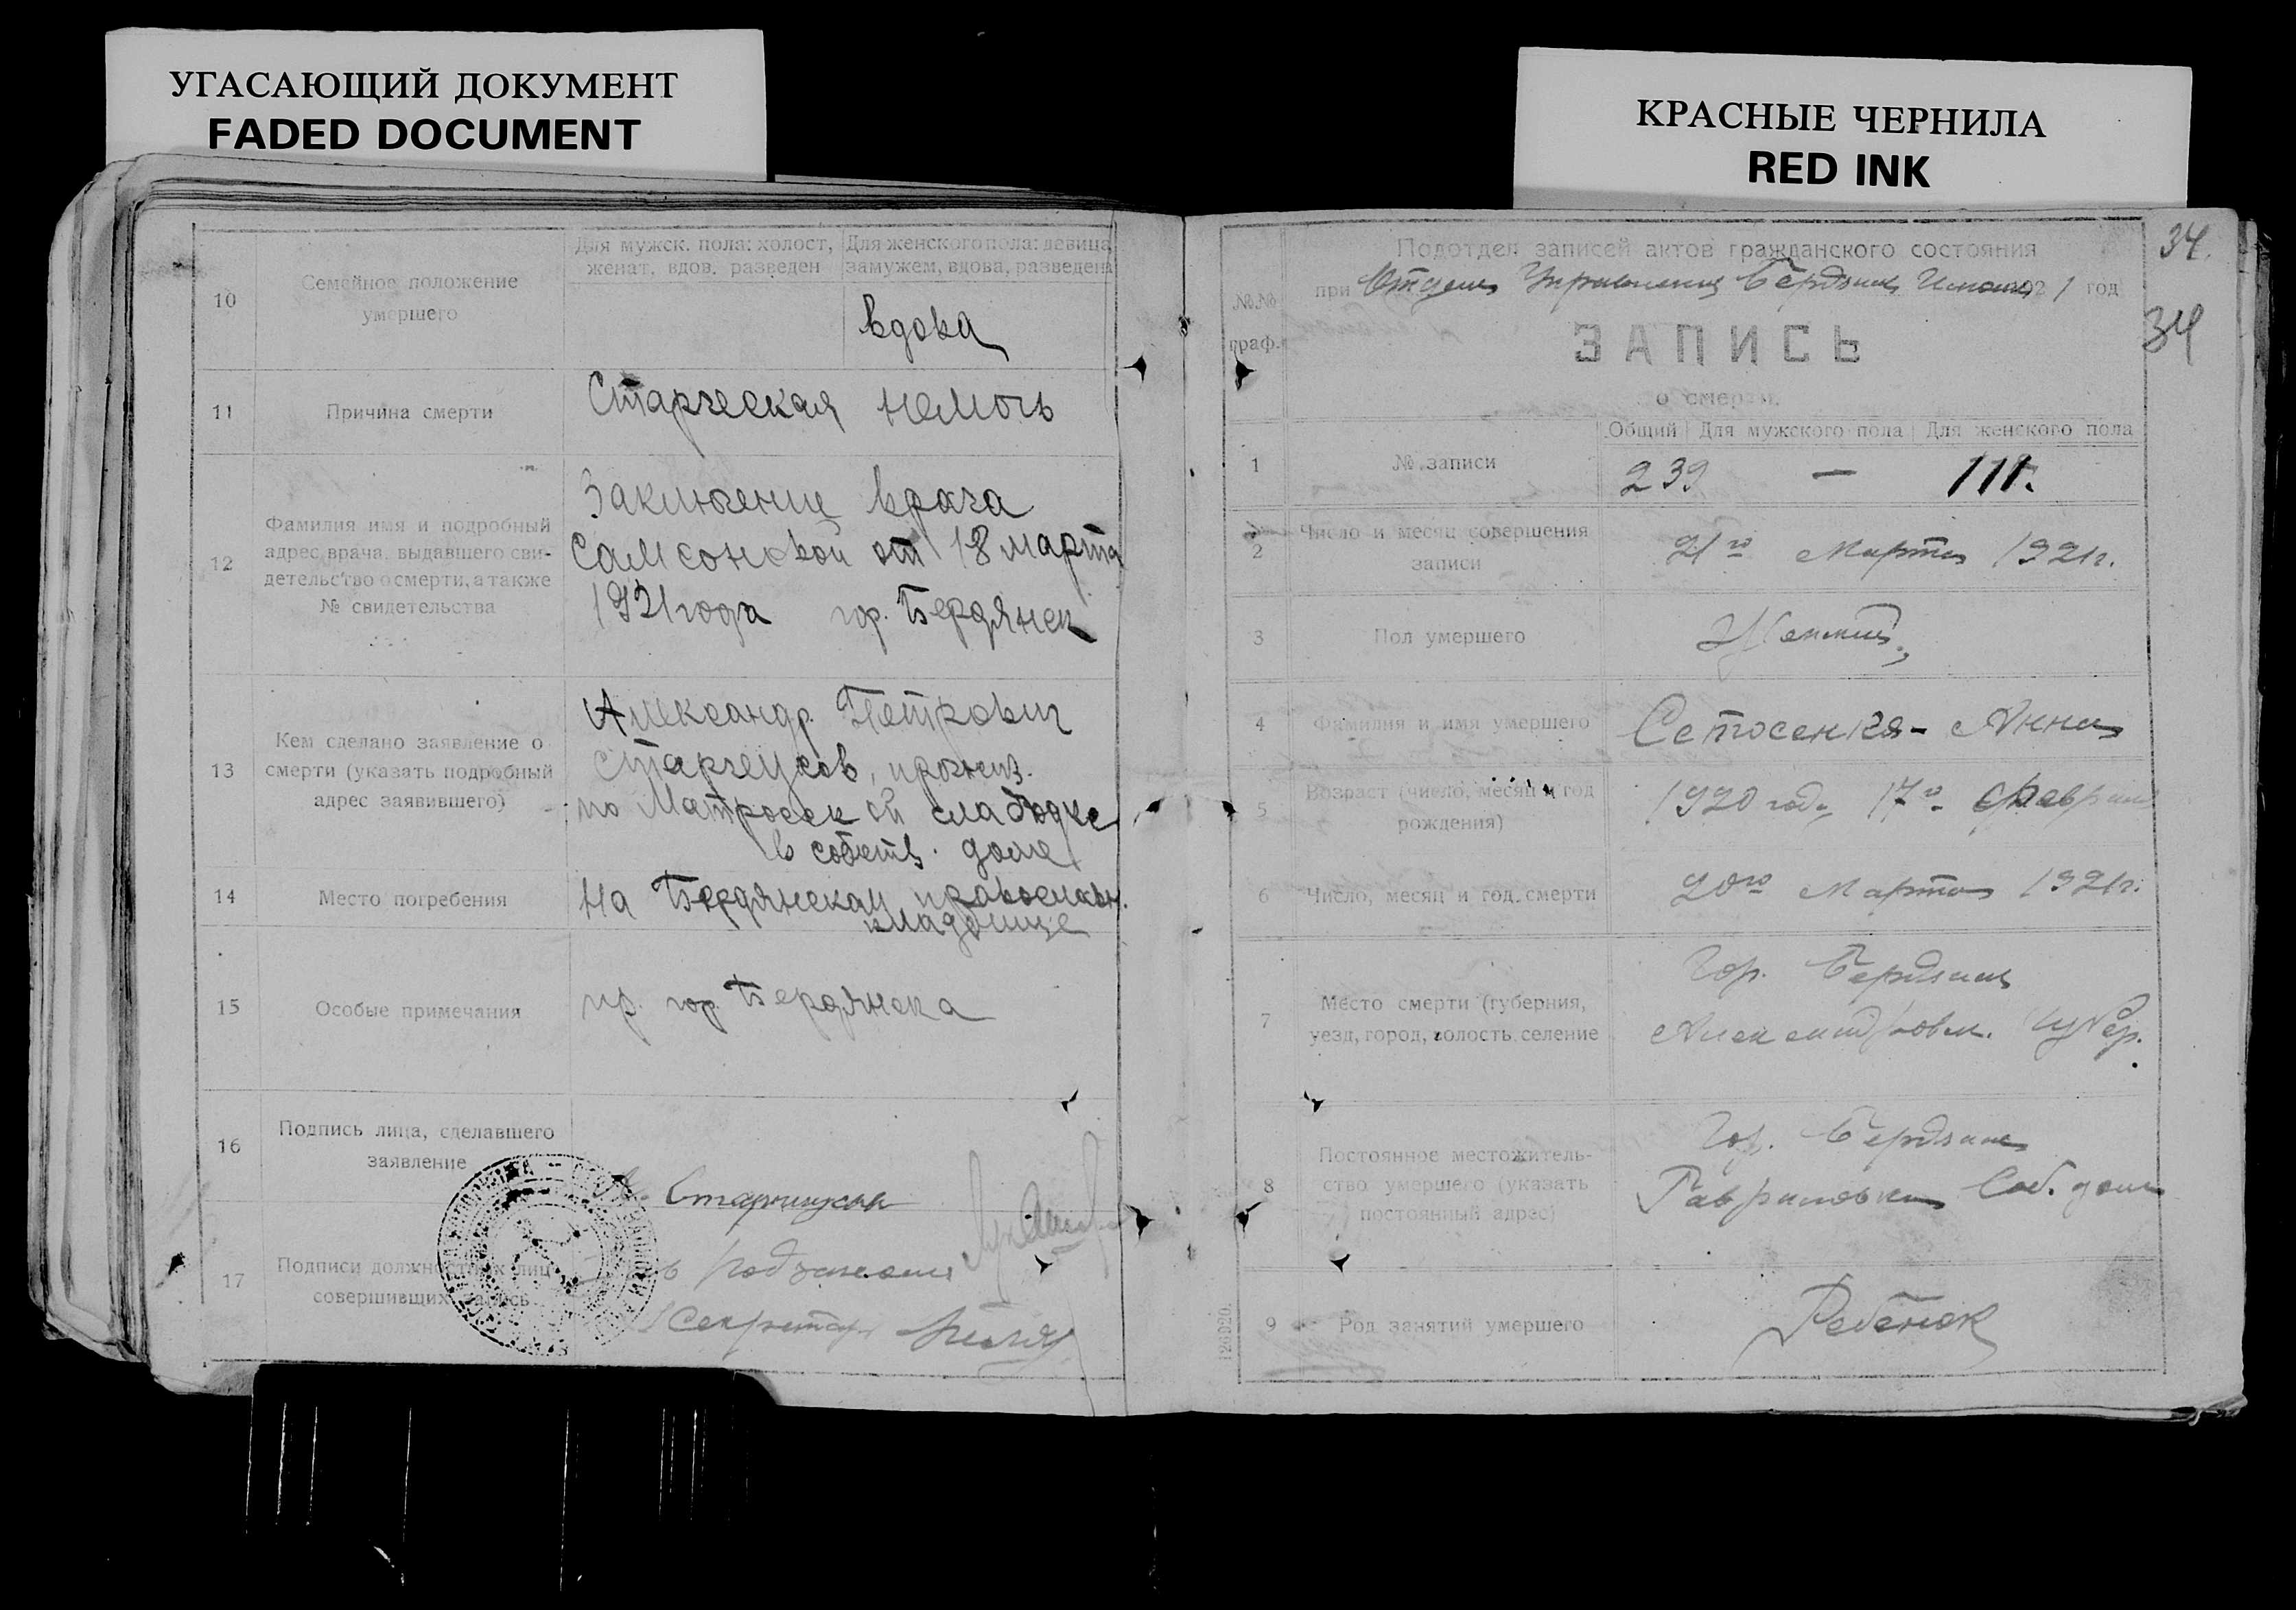 УГАСАЮЩИЙ ДОКУМЕНТ
FADED DOCUMENT
КРАСНЫЕ ЧЕРНИЛА
RED INK
10
Семейное положение
умершего
Для мужск. пола: холост,
женат, вдов, разведен
Для женского пола: девица
замужем, вдова, разведена
вдова
11
Причина смерти
Старческая немочь
12
Фамилия имя и подробный
адрес врача, выдавшего сви-
детельство о смерти, а также
№ свидетельства
Заключение врача
Самсоновой от 18 марта
1921 года гор. Бердянск
13
Кем сделано заявление о
смерти (указать подробный
адрес заявившего)
Александр Петрович
прожив.
по Матросской слабодке
в собств. доме
14
Место погребения
На Бердянском православн.
кладбище
15
Особые примечания
гр. гор. Бердянска
16
Подпись лица, сделавшего
заявление
17
Подписи должностных лиц
совершивших запись
Секретарь
34.
34
№№
граф.
Подотдел записей актов гражданского состояния
при Отделе Управления Бердянск. 1921 год
ЗАПИСЬ
о смерти.
Общий Для мужского пола Для женского пола
1
№ записи
239 — 111.
2
Число и месяц совершения
записи
21го Марта 1921г.
3
Пол умершего
Женский
4
Фамилия и имя умершего
Анна
5
Возраст (число, месяц и год
рождения)
1920 года 17го февраля
6
Число, месяц и год смерти
20го Марта 1921г.
7
Место смерти (губерния,
уезд, город, волость, селение
Гор. Бердянск
Александровск. губер.
8
Постоянное местожитель-
ство умершего (указать
постоянный адрес)
Гор. Бердянск
Соб. дом
9
Род занятий умершего
Ребенок
126920.